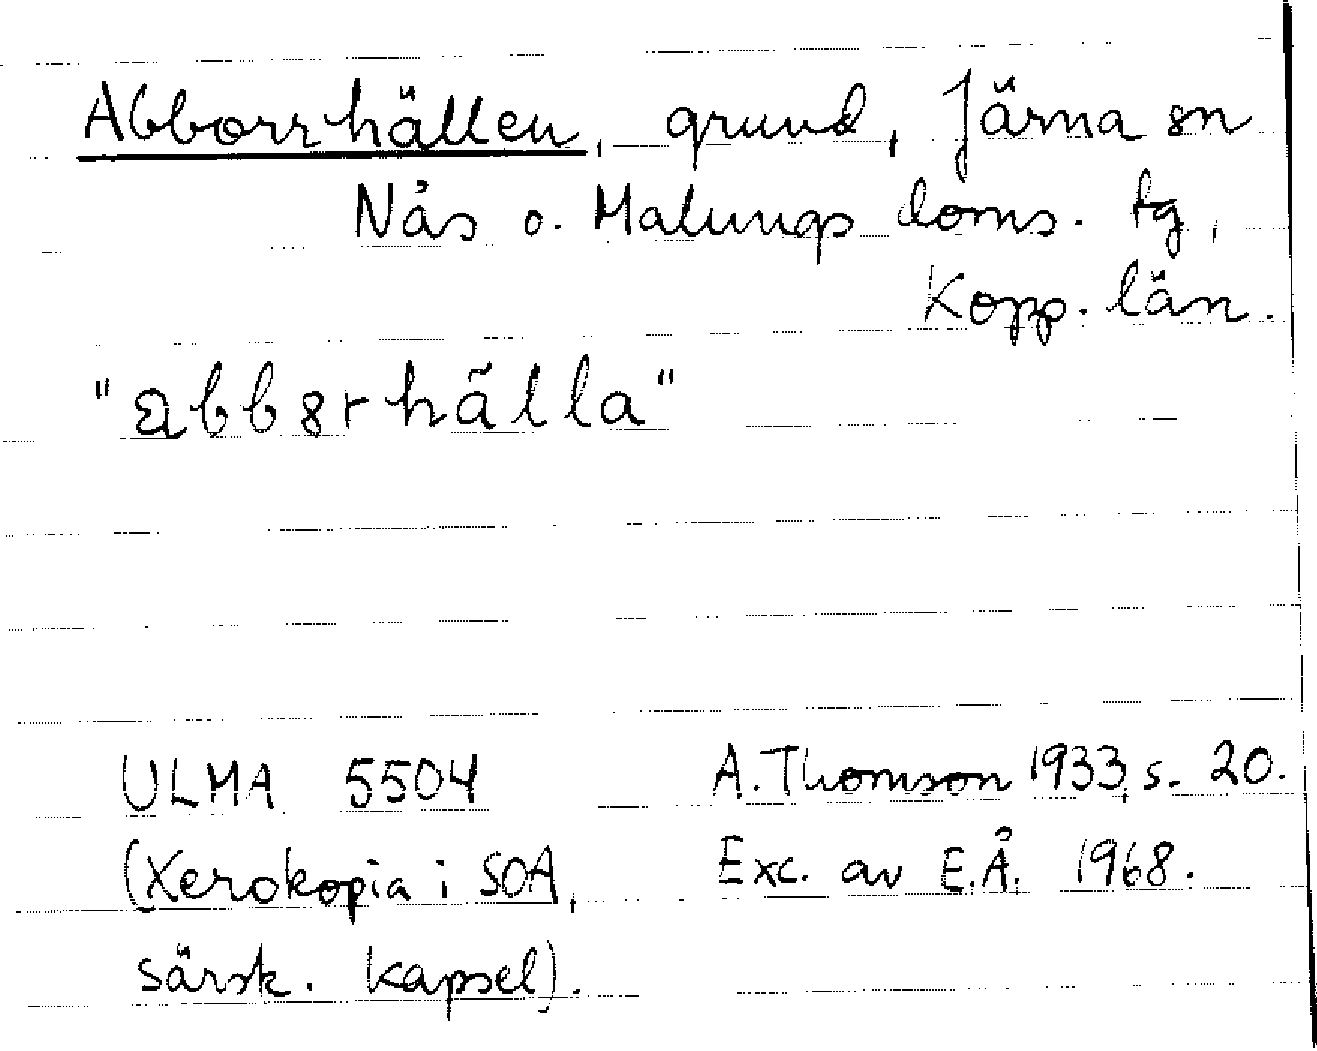 Abborrhällen, grund, Järna sn
Nås o. Malungs doms. tg,
Kopp. län.
"abb8rhãlla"
ULMA 5504 A. Thomson 1933, s. 20.
(Xerokopia i SOA, Exc. av E.Å. 1968.
särsk. kapsel).